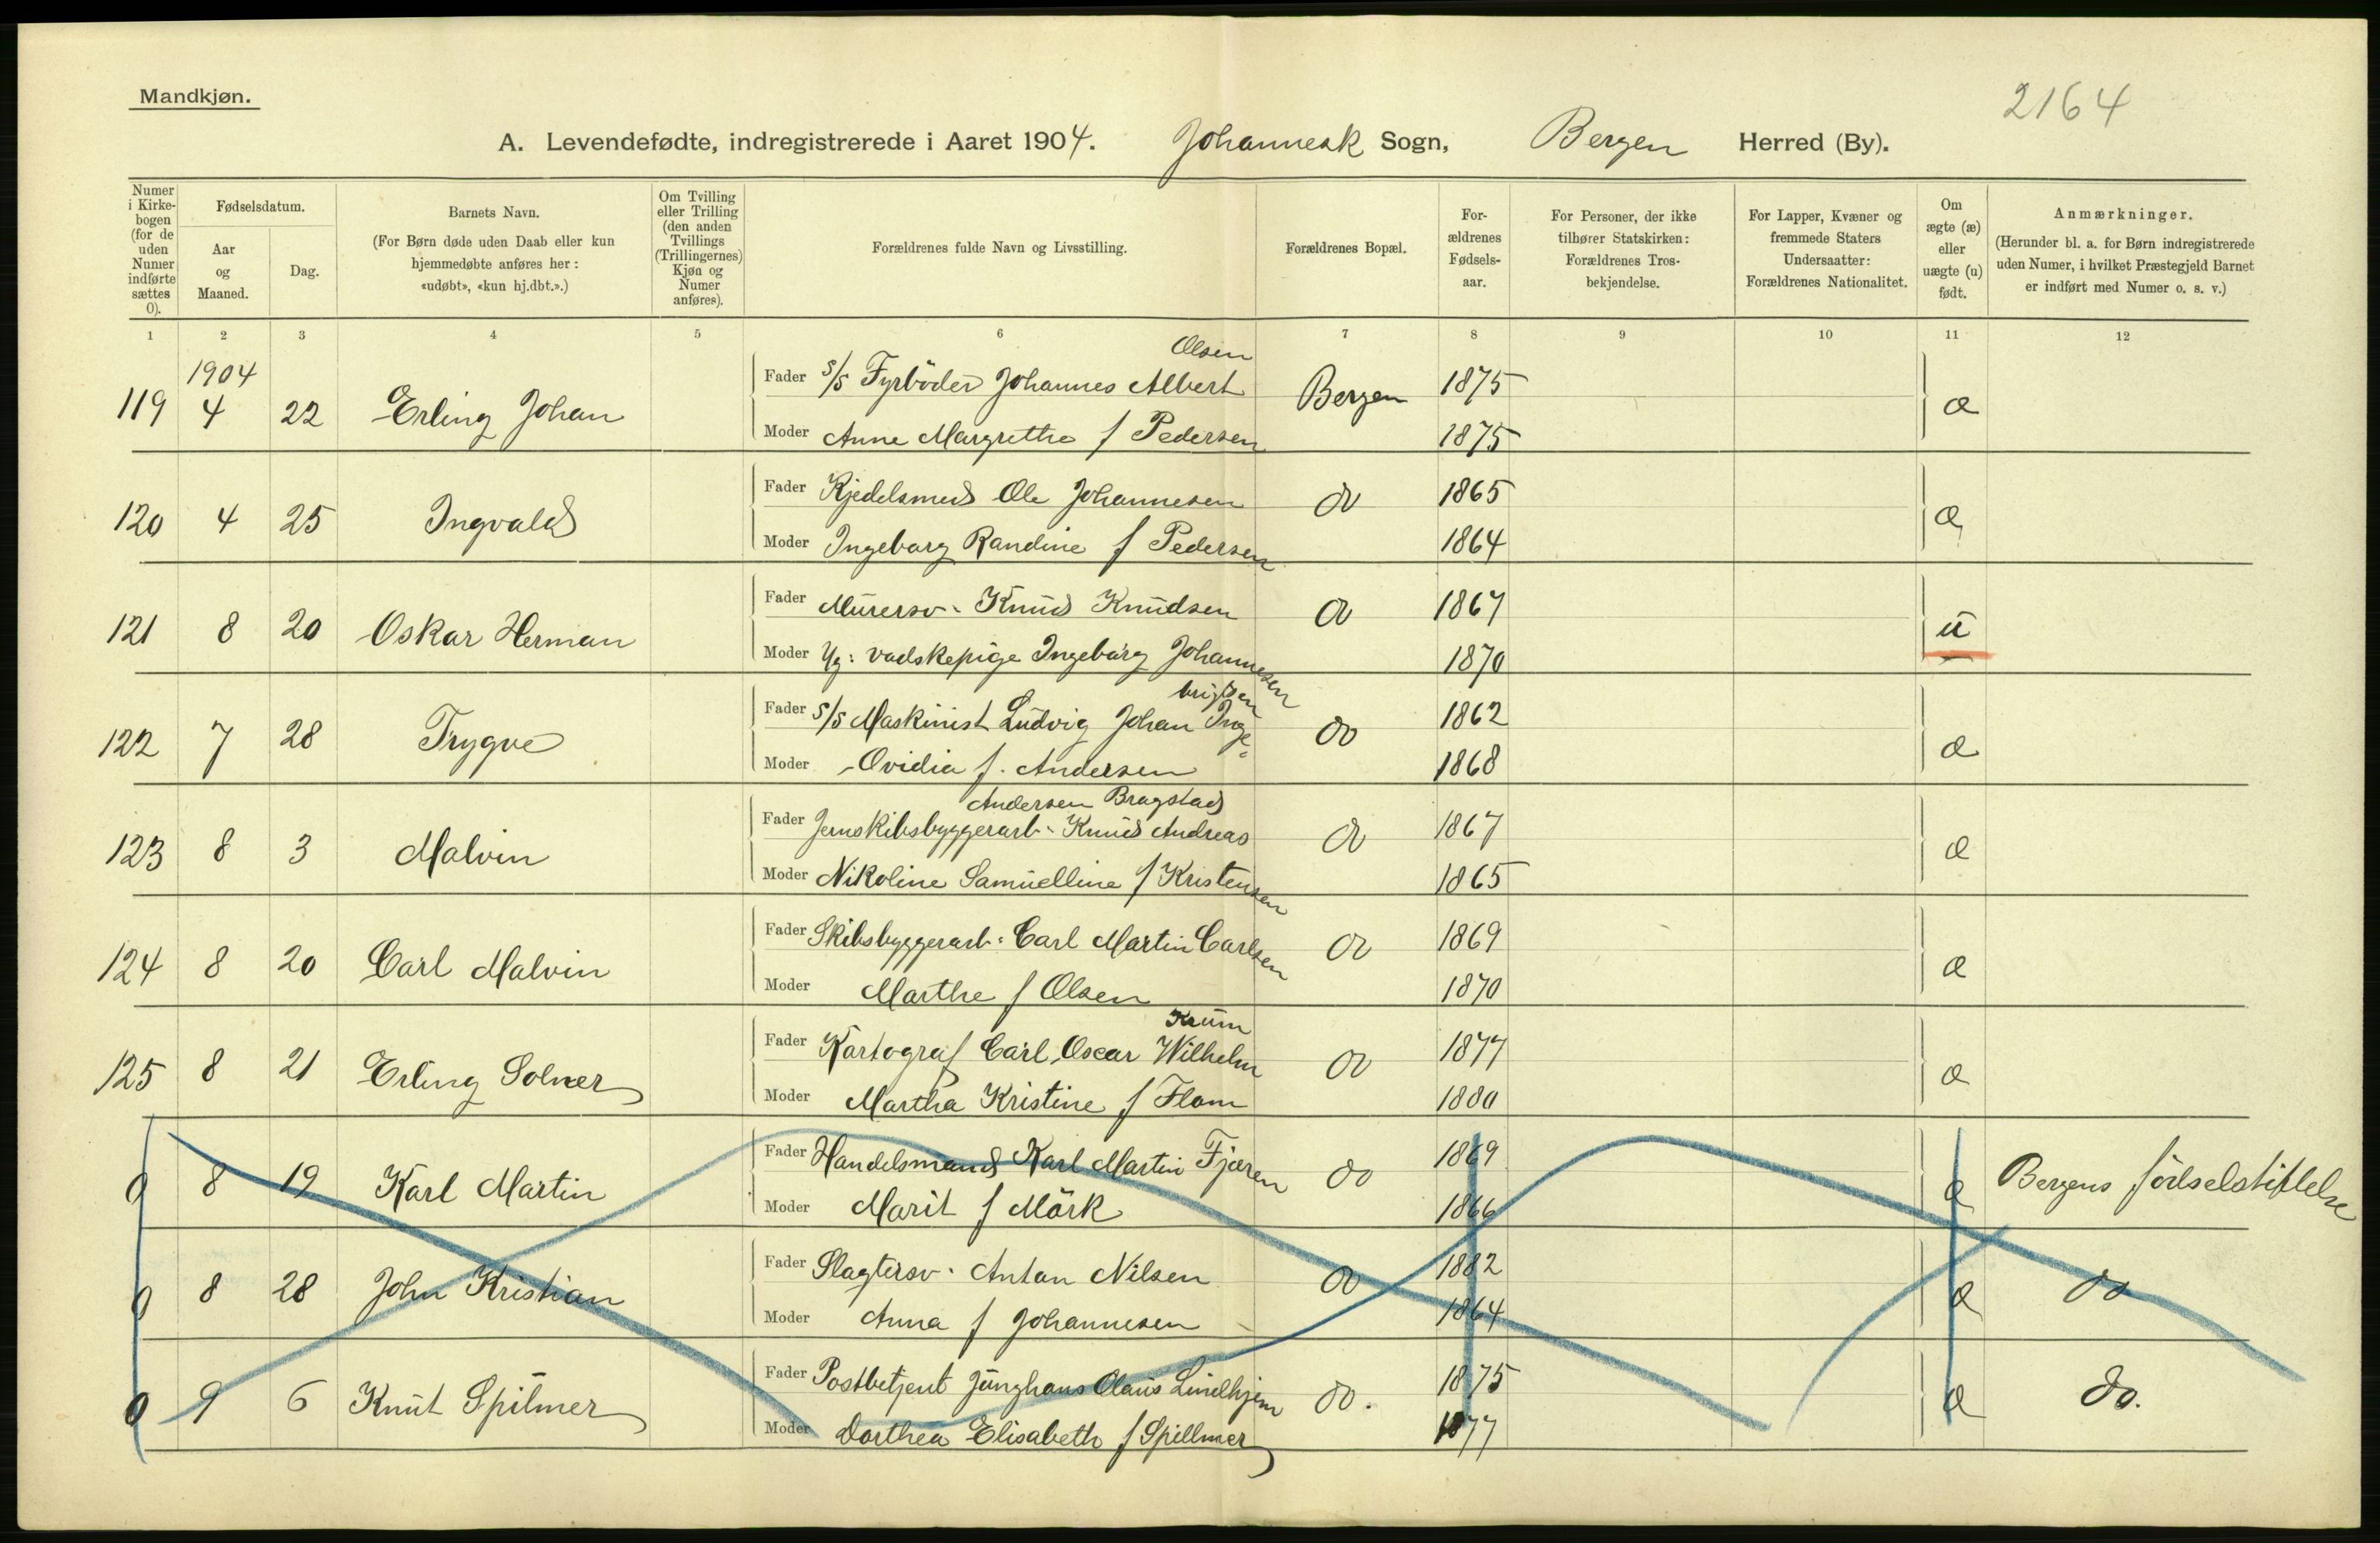 Mandkjøn.
2164
A. Levendefødte, indregistrerede i Aaret 1904. Johannesk Sogn, Bergen Herred (By).
Numer i Kirkebogen (for de uden Numer indførte sættes 0).
Fødselsdatum.
Aar og Maaned.
Dag.
Barnets Navn.
(For Børn døde uden Daab eller kun hjemmedøbte anføres her: «udøbt», «kun hj.dbt.».)
Om Tvilling eller Trilling (den anden Tvillings (Trillingernes) Kjøn og Numer anføres).
Forældrenes fulde Navn og Livsstilling.
Forældrenes Bopæl.
Forældrenes Fødselsaar.
For Personer, der ikke tilhører Statskirken: Forældrenes Trosbekjendelse.
For Lapper, Kvæner og fremmede Staters Undersaatter: Forældrenes Nationalitet.
Om ægte (æ) eller uægte (u) født.
Anmærkninger.
(Herunder bl. a. for Børn indregistrerede uden Numer, i hvilket Præstegjeld Barnet er indført med Numer o. s. v.)
1 2 3 4 5 6 7 8 9 10 11 12
1904
Olsen
119 4 22 Erling Johan Fader S/S Fyrböder Johannes Albert Bergen 1875 æ
Moder Anne Margrethe f Pedersen 1875
120 4 25 Ingvald Fader Kjedelsmed Ole Johannesen do 1865 æ
Moder Ingeborg Randine f Pedersen 1864
121 8 20 Oskar Herman Fader Murersv. Knud Knudsen do 1867 u
Moder Ug: vadskepige Ingeborg Johannesen 1870
brigtsen
122 7 28 Trygve Fader S/S Maskinist Ludvig Johan Inge- do 1862 æ
Moder Ovidia f. Andersen 1868
Andersen Bragstad
123 8 3 Malvin Fader Jernskibsbyggerarb. Knud Andreas do 1867 æ
Moder Nikoline Samuelline f Kristensen 1865
124 8 20 Carl Malvin Fader Skibsbyggerarb: Carl Martin Carlsen do 1869 æ
Moder Marthe f Olsen 1870
Krum
125 8 21 Erling Solner Fader Kartograf Carl Oscar Wilhelm do 1877 æ
Moder Martha Kristine f Flom 1880
0 8 19 Karl Martin Fader Handelsmand Karl Martin Fjæren do 1869 æ Bergens födselstiftelse
Moder Marit f Mörk 1866
0 8 28 John Kristian Fader Slagtersv. Anton Nilsen do 1882 æ do
Moder Anna f Johannesen 1864
0 9 6 Knut Spilmer Fader Postbetjent Junghans Olaus Lindhjem do. 1875 æ do.
Moder Dorthea Elisabeth f Spillmer 1877